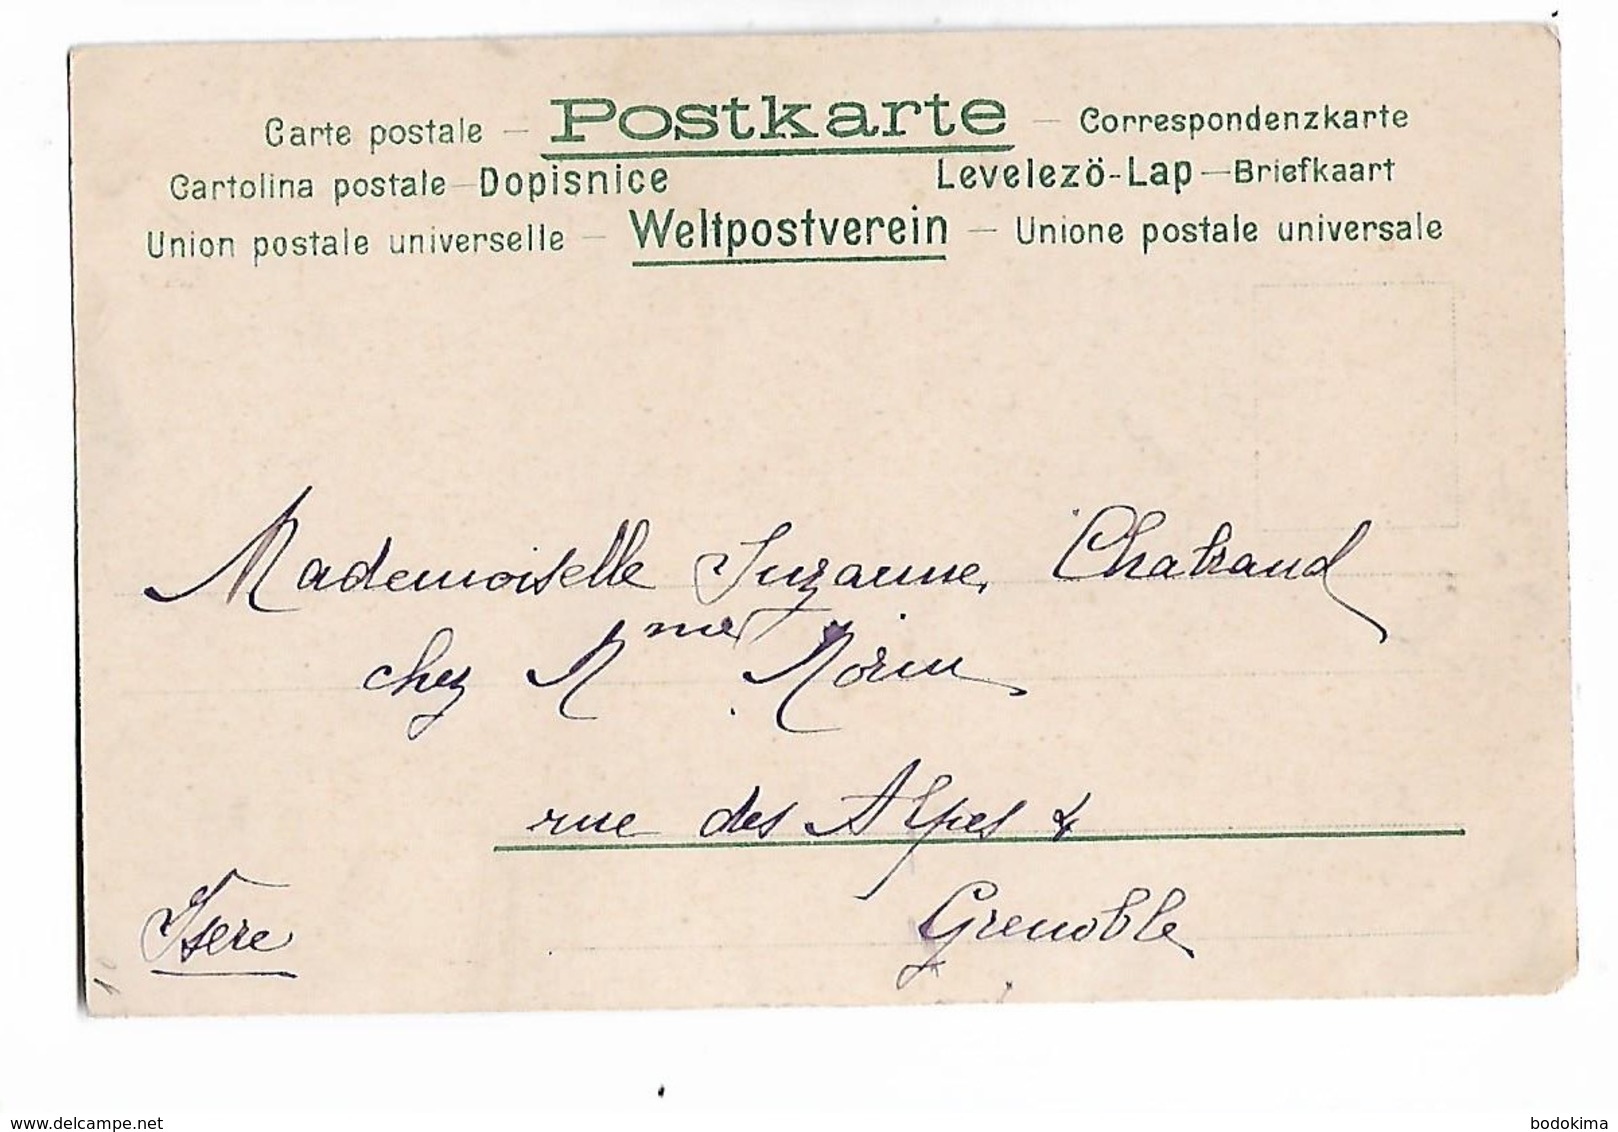 Carte postale – Postkarte – Correspondenzkarte
Cartolina postale – Dopisnice Levelezö-Lap – Briefkaart
Union postale universelle – Weltpostverein – Unione postale universale
Mademoiselle Suzanne Chatraud
chez Mme Morin
rue des Alpes 4
Grenoble
Isere
www.delcampe.net
bodokima